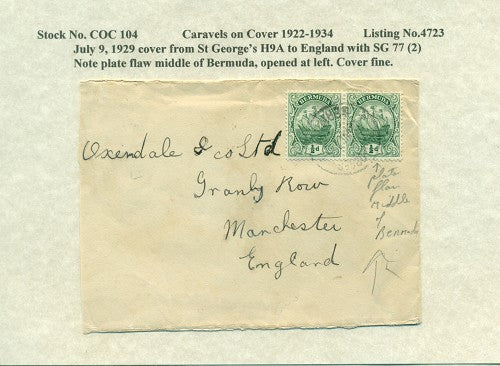 Stock No. COC 104 Caravels on Cover 1922-1934 Listing No.4723
July 9, 1929 cover from St George's H9A to England with SG 77 (2)
Note plate flaw middle of Bermuda, opened at left. Cover fine.
BERMUDA BERMUDA
½d ½d
Oxendale & Co Ltd
Granby Row
Manchester
England
plate
flaw
middle
of
Bermuda